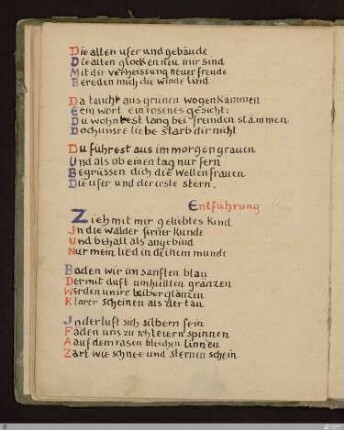 Die alten ufer und gebäude
Die alten glocken neu mir sind
Mit der verheissung neuer freude
Bereden mich die winde lind

Da taucht aus grünen wogenkämmen
Ein wort ein rosenes gesicht:
Du wohntest lang bei fremden stämmen
Doch unsre liebe starb dir nicht

Du fuhrest aus im morgengrauen
Und als ob einen tag nur fern
Begrüssen dich die wellenfrauen
Die ufer und der erste stern.

Entführung
Zieh mit mir geliebtes kind
In die wälder ferner kunde
Und behalt als angebind
Nur mein lied in deinem munde

Baden wir im sanften blau
Der mit duft umhüllten gränzen
Werden unsre leiber glänzen
Klarer scheinen als der tau

In der luft sich silbern fein
Fäden uns zu schleiern spinnen
Auf dem rasen bleichen linnen
Zart wie schnee und sternenschein